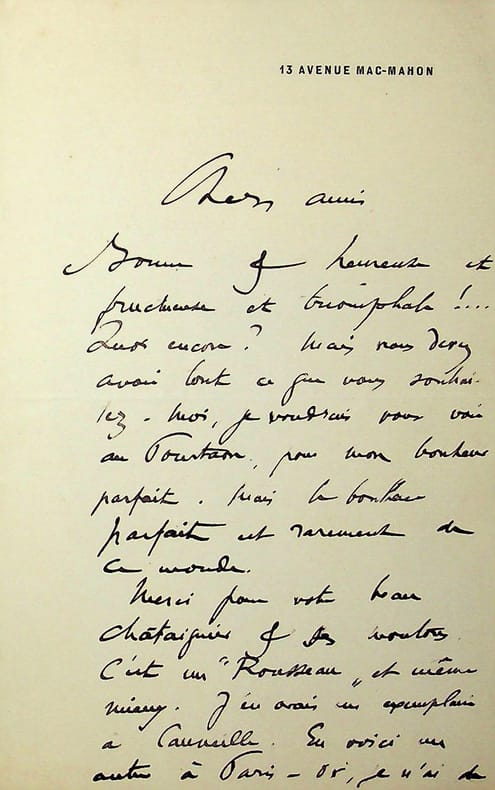 13 AVENUE MAC-MAHON
Chers amis
Bonne & heureuse et
fructueuse et triomphale !...
Quoi encore ? Mais vous devez
avoir tout ce que vous souhai-
tez - Moi, je voudrais vous voir
au , pour mon bonheur
parfait. Mais le bonheur
parfait est rarement de
ce monde.
Merci pour votre beau
châtaignier & ses moutons.
C'est un "Rousseau" et même
mieux. J'en avais un exemplaire
à . En voici un
autre à Paris - Or, je n'ai de